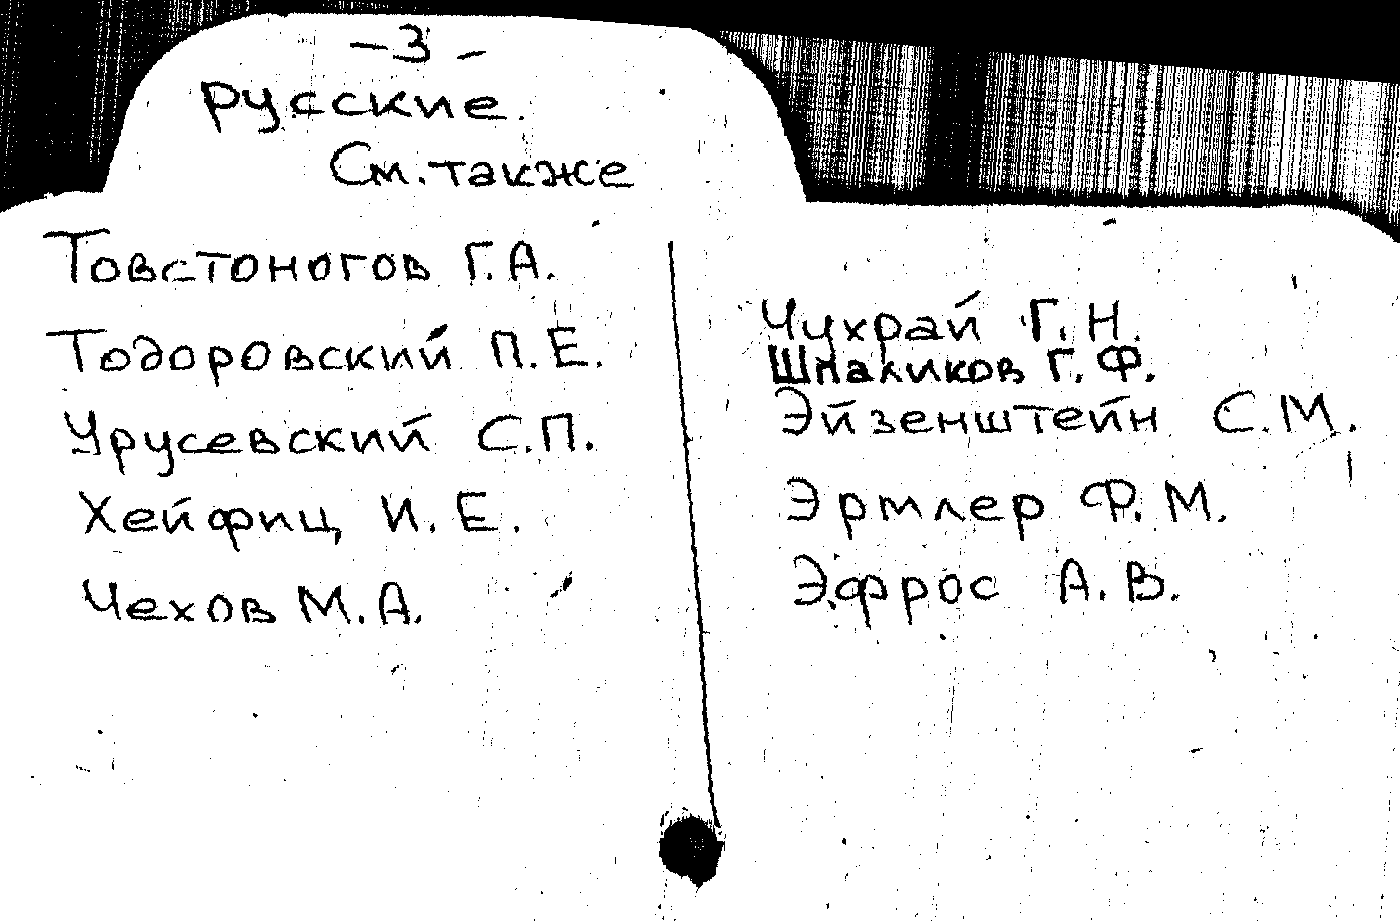 -3-
русские.
См. также
Товстоногов Г.А.
Тодоровский П.Е.
Урусевский С.П.
Хейфиц И.Е.
Чехов М.А.
Чухрай Г.Н.
Шпаликов Г.Ф.
Эйзенштейн С.М.
Эрмлер Ф.М.
Эфрос А.В.